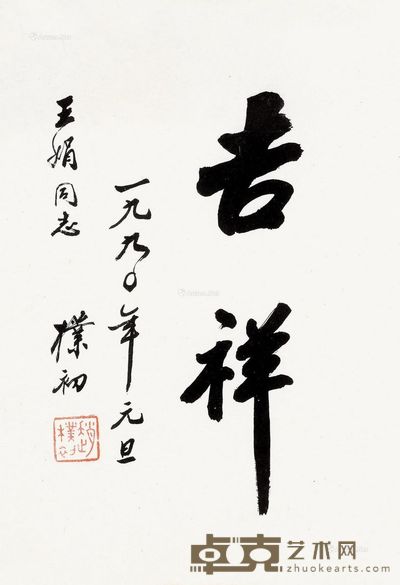 吉祥
一九九〇年元旦
王娟同志
樸初
趙樸初
卓克艺术网
zhuokearts.com